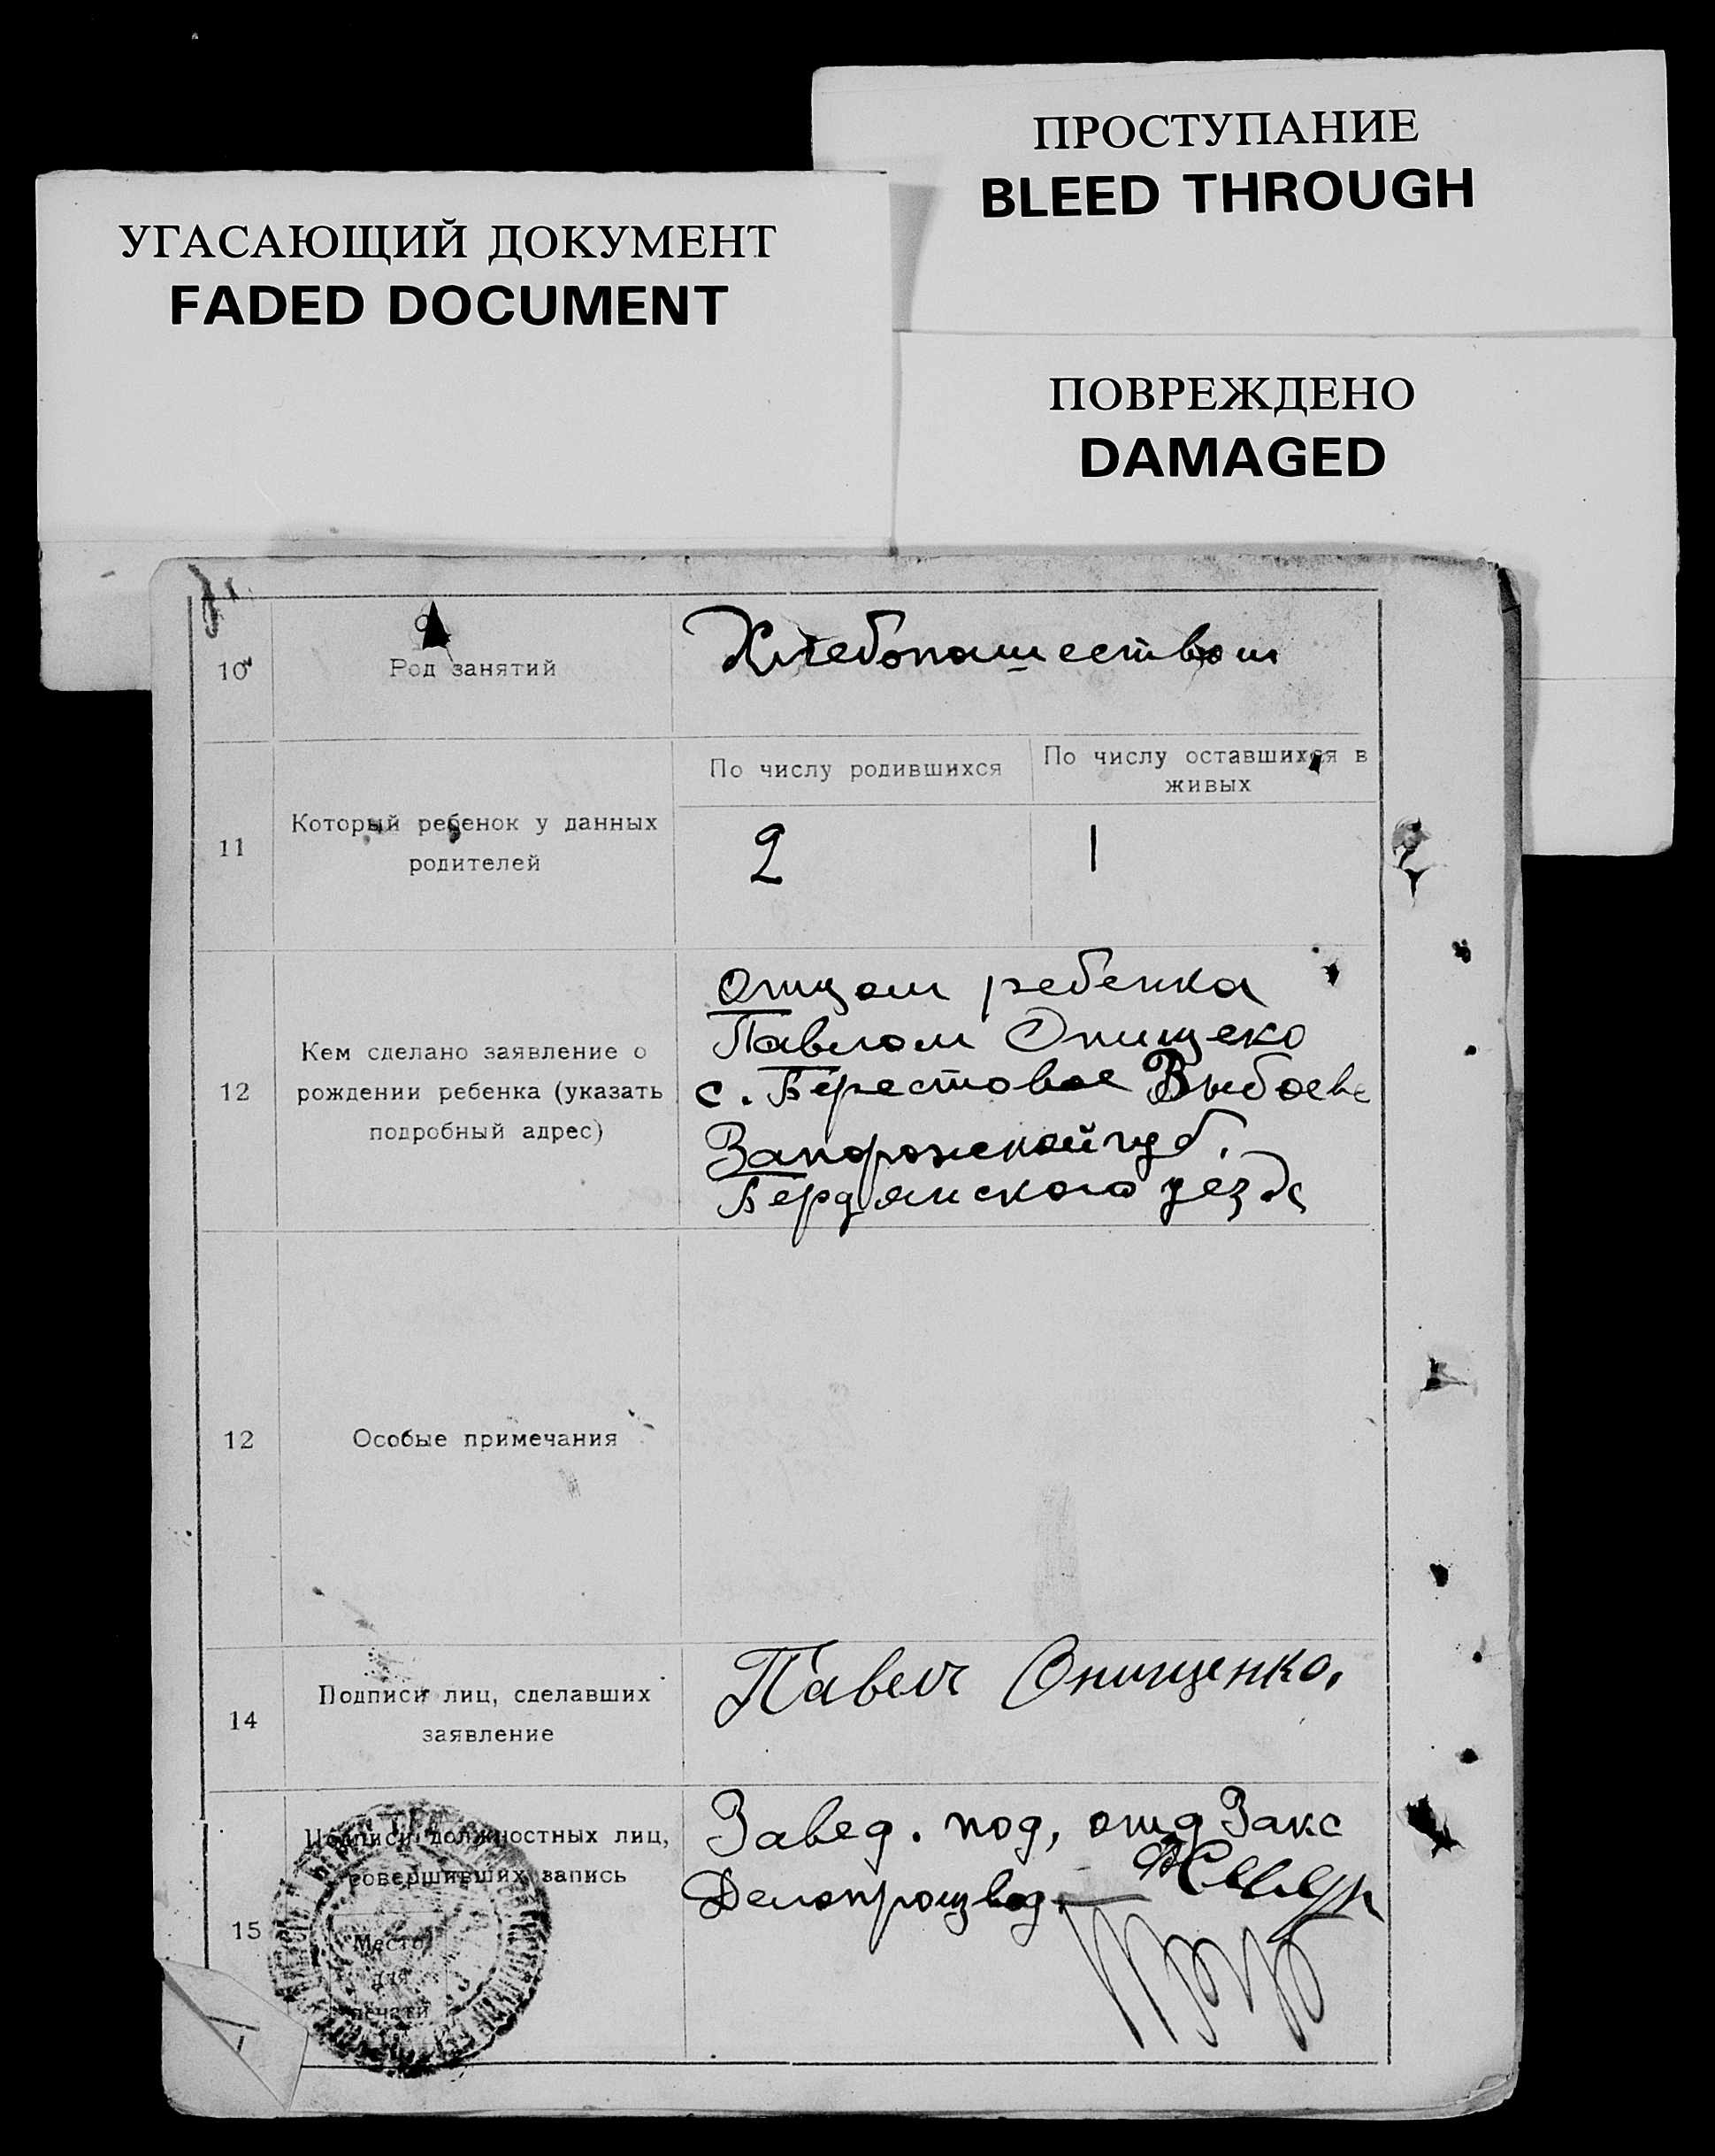 ПРОСТУПАНИЕ
BLEED THROUGH
УГАСАЮЩИЙ ДОКУМЕНТ
FADED DOCUMENT
ПОВРЕЖДЕНО
DAMAGED
10
Род занятий
Хлебопашеством
11
Который ребенок у данных
родителей
По числу родившихся
По числу оставшихся в
живых
2
1
12
Кем сделано заявление о
рождении ребенка (указать
подробный адрес)
Отцом ребенка
Павлом Онищеко
с. Берестовое
Запорожской губ.
Бердянского уезда
12
Особые примечания
14
Подписи лиц, сделавших
заявление
Павел Онищенко.
15
Подписи должностных лиц,
совершивших запись
Место
для
печати
Завед. под, отд Загс
Делопроизвод.